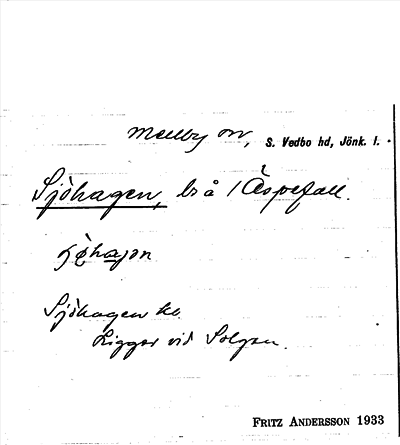 Mellby sn, S. Vedbo hd, Jönk. l.
Sjöhagen, bs å 1 Äspefall.
Sjöhagen
Ligger vid Solgen.
FRITZ ANDERSSON 1933